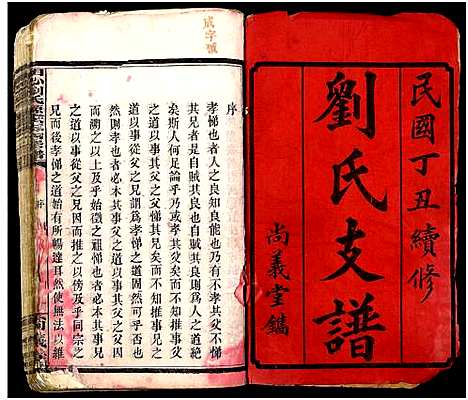 民國丁丑續修
劉氏支譜
尚義堂鐫
咸字號
序
孝悌也者人之良知良能也乃有不孝其父不悌
其兄者是自賊其良也自賊其良則爲人之道絶
矣斯人何足論乎乃或孝其父矣而不知推事父
之道以事其父之父悌其兄矣而不知推事兄之
道以事從父之兄謂爲孝悌之道固然可乎也
然則孝也者必本其事父之道以事其父之父因
而溯之以上及乎始徵之祖悌也者必本其事兄
之道以事從父之兄因而推之以傍及乎同宗之
兄而後孝悌之道始有所暢達耳然使無法以維
序
尚義堂